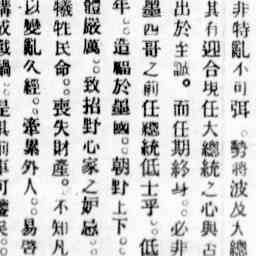 非特亂不可弭。勢將波及大總
其有迎合現任大總統之心與否
出於主誠。而任期終身。必非
墨西哥之前任總統低士乎。低
年。造福於墨國。朝野上下。
體嚴厲。致招野心家之妒忌。
犧牲民命。喪失財產。不知凡
以變亂久經。牽累外人。易啓
構成戰禍。是其前車可鑒矣。